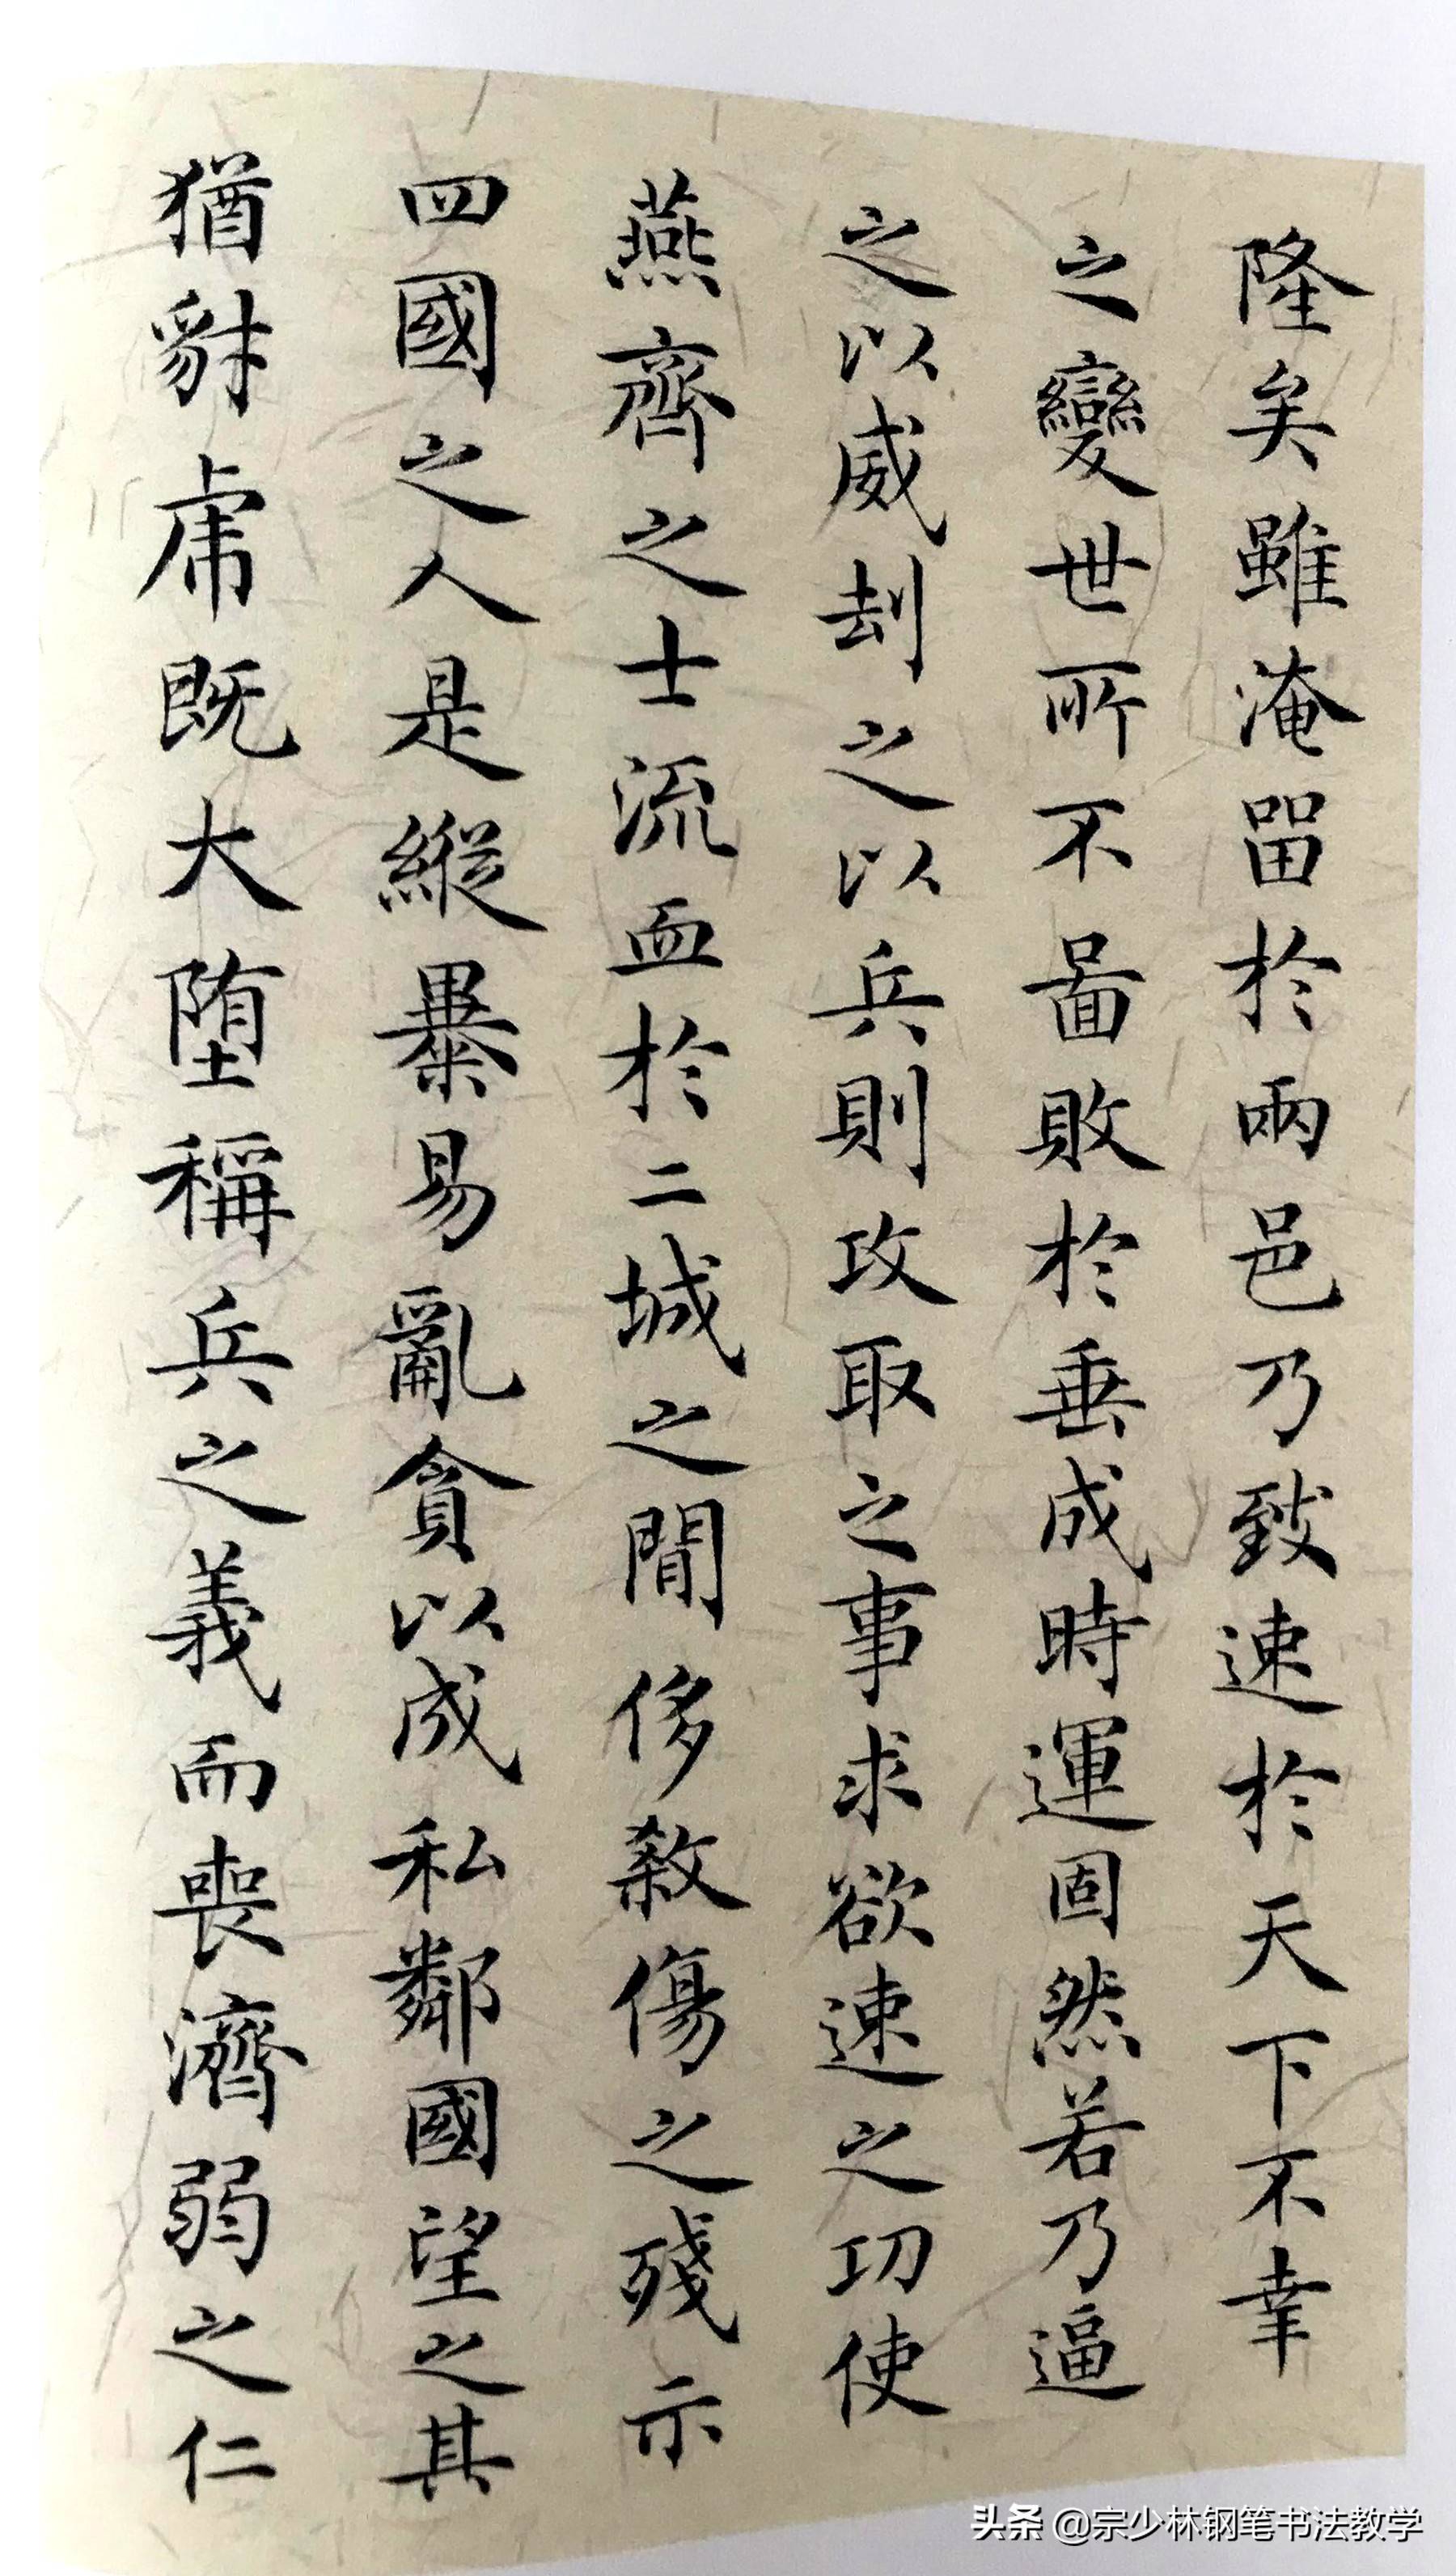 隆矣雖淹畱於兩邑乃致速於天下不幸
之變世所不啚敗於垂成時運固然若乃逼
之以威刦之以兵則攻取之事求欲速之功使
燕齊之士流血於二城之閒侈敘傷之殘示
四國之人是縱暴易亂貪以成私鄰國望之其
猶豺虎既大墮稱兵之義而喪濟弱之仁
头条 @宗少林钢笔书法教学